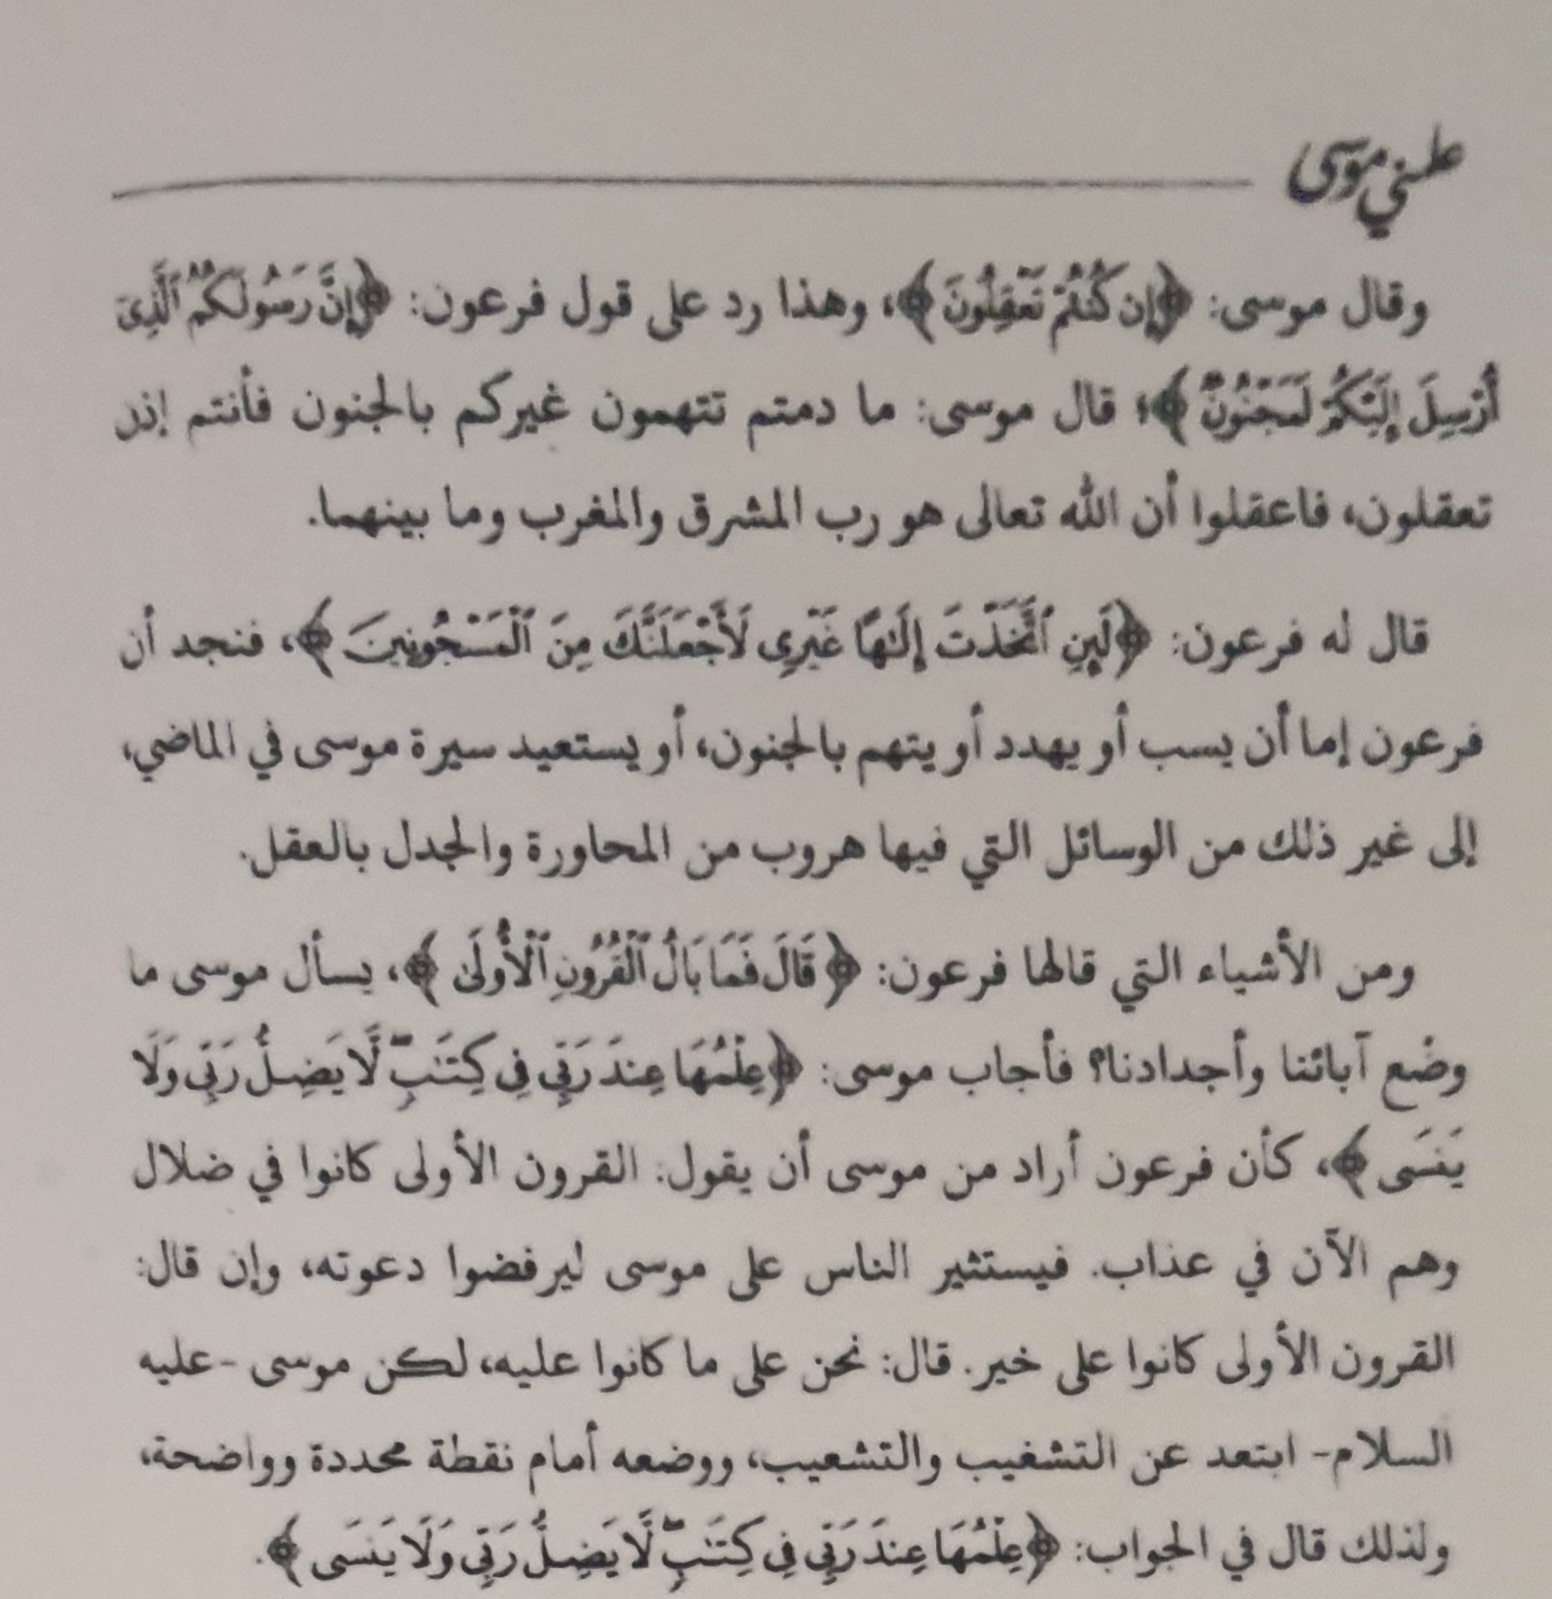 علمني موسى
وقال موسى: ﴿إِن كُنتُمْ تَعْقِلُونَ﴾، وهذا رد على قول فرعون: ﴿إِنَّ رَسُولَكُمُ ٱلَّذِىٓ
أُرْسِلَ إِلَيْكُمْ لَمَجْنُونٌ﴾؛ قال موسى: ما دمتم تتهمون غيركم بالجنون فأنتم إذن
تعقلون، فاعقلوا أن الله تعالى هو رب المشرق والمغرب وما بينهما.
قال له فرعون: ﴿لَئِنِ ٱتَّخَذْتَ إِلَٰهًا غَيْرِى لَأَجْعَلَنَّكَ مِنَ ٱلْمَسْجُونِينَ﴾، فنجد أن
فرعون إما أن يسب أو يهدد أو يتهم بالجنون، أو يستعيد سيرة موسى في الماضي،
إلى غير ذلك من الوسائل التي فيها هروب من المحاورة والجدل بالعقل.
ومن الأشياء التي قالها فرعون: ﴿قَالَ فَمَا بَالُ ٱلْقُرُونِ ٱلْأُولَىٰ﴾، يسأل موسى ما
وضْع آبائنا وأجدادنا؟ فأجاب موسى: ﴿عِلْمُهَا عِندَ رَبِّى فِى كِتَٰبٍ ۖ لَّا يَضِلُّ رَبِّى وَلَا
يَنسَى﴾، كأن فرعون أراد من موسى أن يقول: القرون الأولى كانوا في ضلال
وهم الآن في عذاب. فيستثير الناس على موسى ليرفضوا دعوته، وإن قال:
القرون الأولى كانوا على خير. قال: نحن على ما كانوا عليه، لكن موسى -عليه
السلام- ابتعد عن التشغيب والتشعيب، ووضعه أمام نقطة محددة وواضحة،
ولذلك قال في الجواب: ﴿عِلْمُهَا عِندَ رَبِّى فِى كِتَٰبٍ ۖ لَّا يَضِلُّ رَبِّى وَلَا يَنسَى﴾.